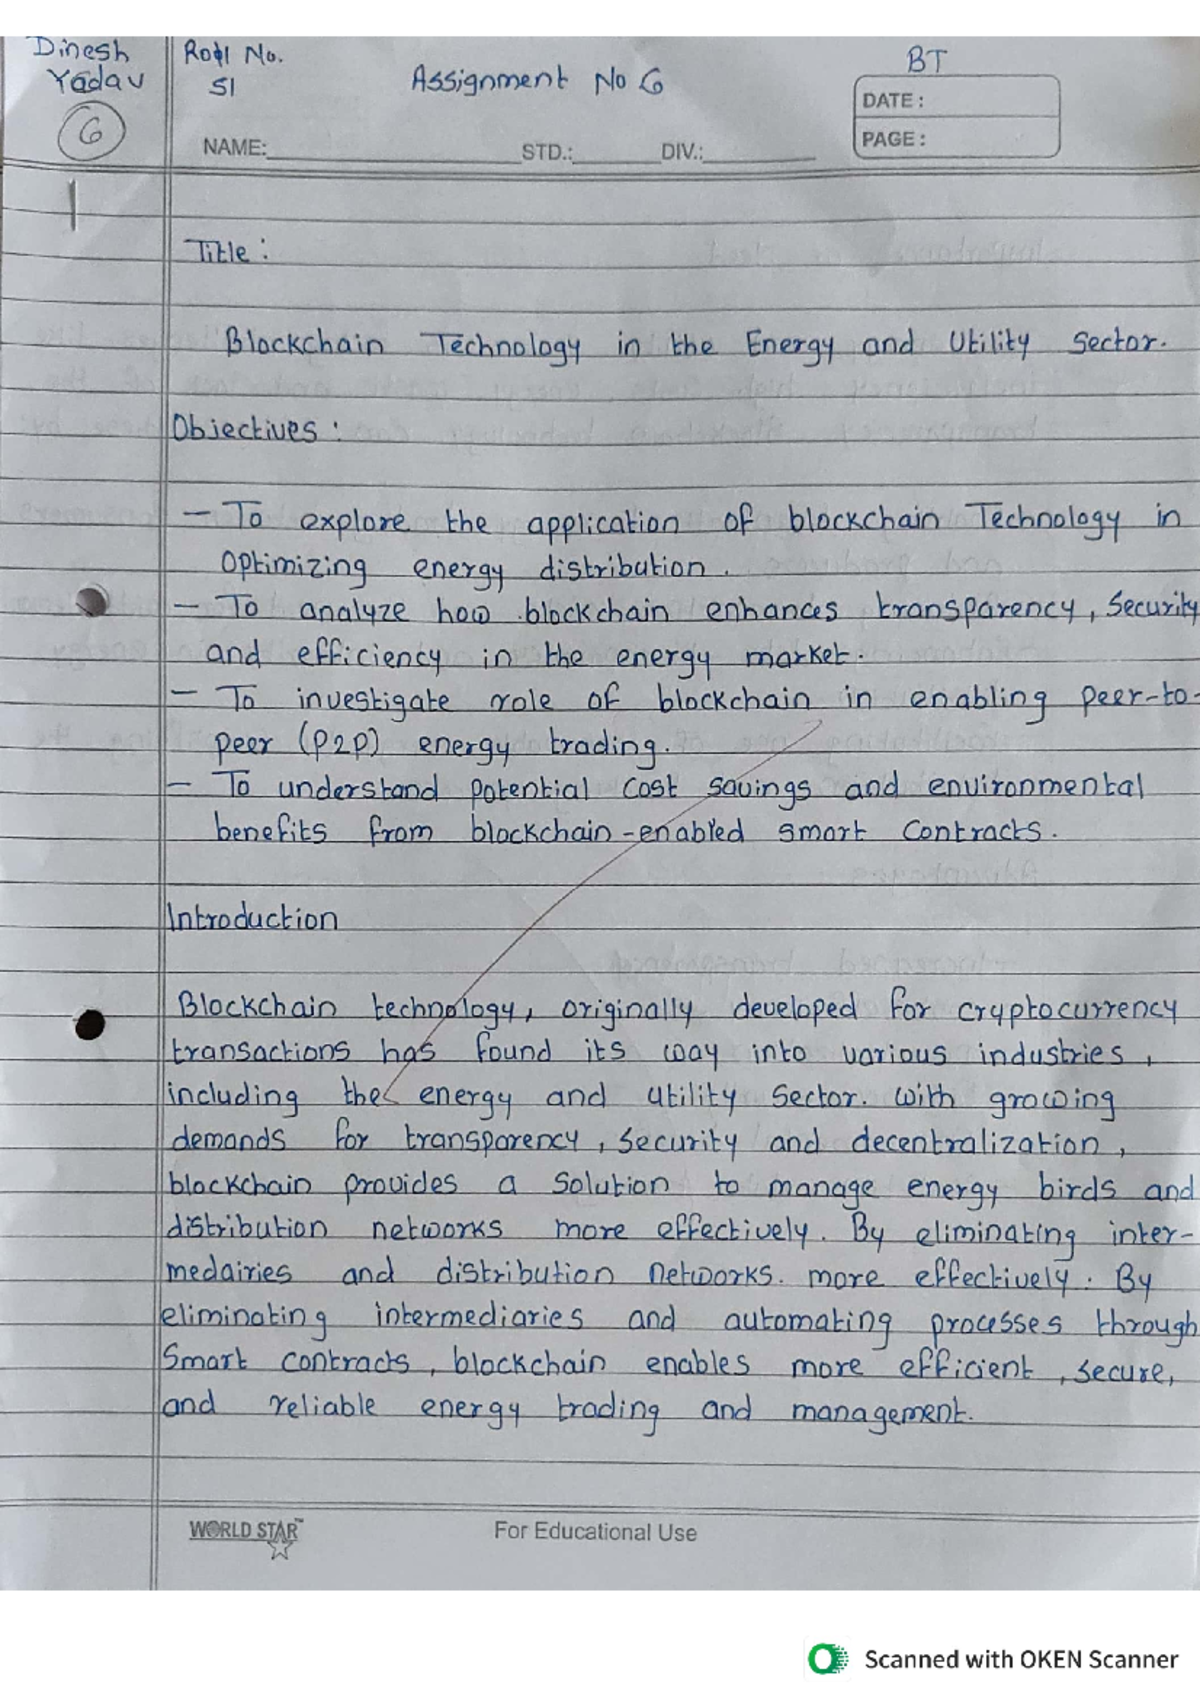 Dinesh Yadav
Roll No. 51
Assignment No 6
BT
6
DATE :
PAGE :
NAME: STD.: DIV.:
1
Title :
Blockchain Technology in the Energy and Utility Sector.
Objectives :
- To explore the application of blockchain Technology in
Optimizing energy distribution.
- To analyze how blockchain enhances transparency, Security
and efficiency in the energy market.
- To investigate role of blockchain in enabling peer-to-
peer (P2P) energy trading.
- To understand potential cost savings and environmental
benefits from blockchain-enabled smart contracts.
Introduction
Blockchain technology, originally developed for cryptocurrency
transactions has found its way into various industries,
including the energy and utility sector. with growing
demands for transparency, security and decentralization,
blockchain provides a solution to manage energy birds and
distribution networks more effectively. By eliminating inter-
medairies and distribution networks. more effectively. By
eliminating intermediaries and automating processes through
Smart contracts, blockchain enables more efficient, secure,
and reliable energy trading and management.
WORLD STAR™
For Educational Use
Scanned with OKEN Scanner